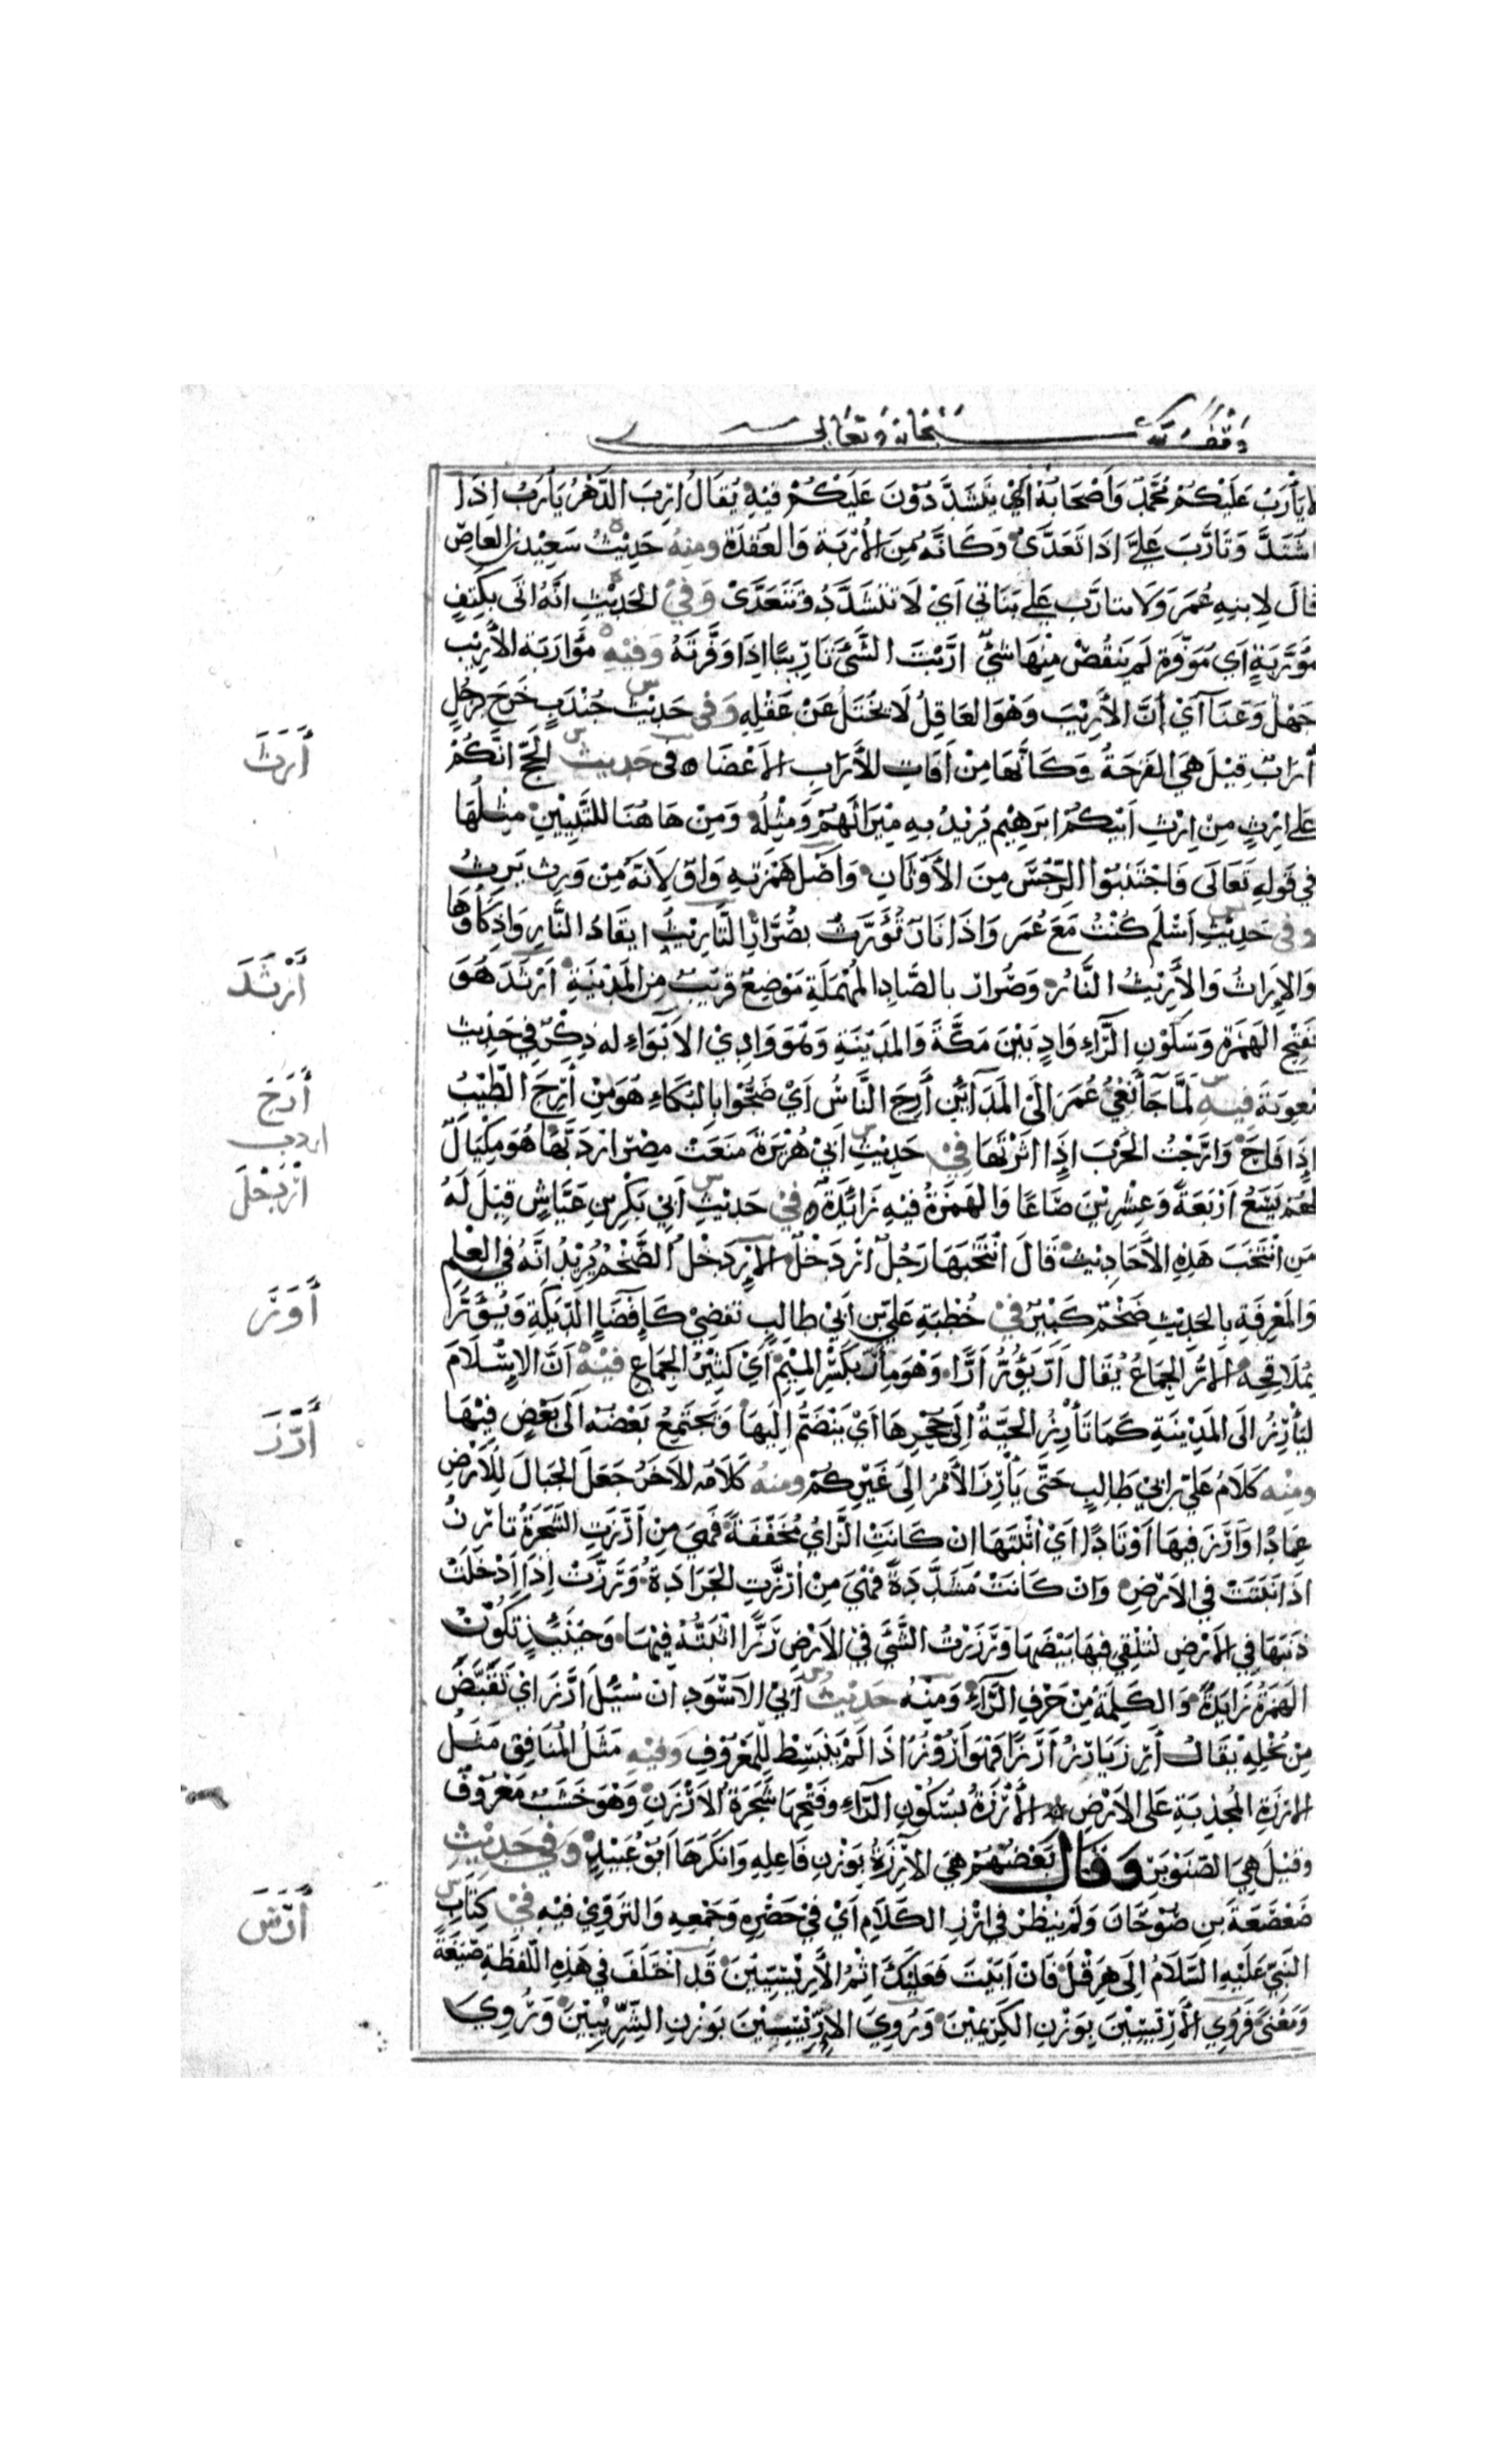 وقف لله سبحانه وتعالى
لا يَأْرَبُ عَلَيْكُمْ مُحَمَّدٌ وَأَصْحَابُهُ أَيْ يَتَشَدَّدُوْنَ عَلَيْكُمْ فِيْهِ يُقَالُ اَرِبَ الدَّهْرُ يَأْرَبُ اِذَا
اشْتَدَّ وَتَأَرَّبَ عَلَيَّ اِذَا تَعَدَّىٰ وَكَأَنَّهُ مِنَ الأُرْبَةِ وَالعُقْدَةِ ومنهُ حَدِيْثُ سَعِيْدِ بْنِ العَاصِ
قَالَ لِابْنِهِ عُمَرَ وَلَا تتأرَّب عَلىٰ بَنَاتِي اَيْ لَا تَتَشَدَّدُ وَتَتَعَدَّىْ وَفِيْ الحَدِيْثِ اَنَّهُ اُتَى بِكَتِفٍ
مُؤَرَّبَةٍ اَيْ مُوَفَّرةٍ لَم يَنقُصْ مِنْهَا شيْءٌ ارَّبْتَ الشَّيْءَ تَارِيْبًا اِذَا وَفَّرتَهُ وَفِيْهِ مُؤَارَبَةُ الأَرِيْبِ
جَهْلٌ وَعَنَا آيْ اَنَّ الأَرِيْبَ وَهْوَ العَاقِلُ لَا يُخْتَلُ عَنْ عَقْلِهِ وَفِى حَدِيْث جُنْدَبٍ خَرَجَ بِرَجُلٍ
أُرَابٌ قِيْلَ هِيَ القَرحَةُ وَكَأَنَّهَا مِنْ اٰفَاتِ الاٰرَابِ الاَعْضَا ه فِى حَدِيث الحَجِّ اِنَّكُمْ
أَرَثَ
عَلى اِرْثٍ مِنْ اِرْثِ اَبِيْكُمْ اِبرَهِيْم يُرِيْدُ بِهِ مِيْرَاثَهُمْ وَمِثْلُهُ وَمِنْ هَاهُنَا لِلتَّبْيِيْنِ مِثْلُهَا
فِي قَولِهِ تَعَالَى فَاجْتَنِبُوا الرِّجْسَ مِنَ الأَوْثَانِ وَاَصْلُ هَمْزَتِهِ وَاوٌ لِاَنَّهُ مِنْ وَرِثَ يَرِثُ
وفي حَدِيْثِ اَسْلَم كُنْتُ مَعَ عُمَر وَاِذَا نَارٌ تُؤَرَّثُ بِصُرَارٍ التَّارِيْثُ ايقَادُ النَّارِ وَاِذكَاؤُهَا
وَالاِرَاثُ وَالأَرِيْثُ النَّارُ وَصُرَارٌ بالصَّادِ المُهْمَلَةِ مَوْضِعٌ قَرِيْبٌ مِنَ المَدِيْنَةِ اَرْثَدَ هُوَ
أَرْثَدَ
بِفَتْحِ الهَمْزَةِ وَسَكُوْنِ الرَّاءِ وَادٍ بَيْنَ مَكَّةَ وَالمَدِيْنَةِ وَهُوَ وَادِيْ الاَبْوَاءِ له ذِكْرٌ فِي حَدِيْثِ
مُعوِيَةَ فِيْهِ لَمَّا جَآ نَعْيُ عُمَرَ اِلَىٰ المَدَآئِنِ أَرِجَ النَّاسُ أَيْ ضَجُّوا بِالبُكَاءِ هُوَ مِنْ أَرِجَ الطِّيْبُ
أَرَجَ
إِذَا فَاحَ وَارَّجْتُ الحَرْبَ إِذَا اثَرْتَهَا فِيْ حَدِيْثِ اَبِيْ هُرَيْرَةَ مَنَعَتْ مِصْرُ اِرْدَبَّهَا هُوَ مِكْيَالٌ
اردب
لَهُمْ يَسَعُ اَرْبَعَةً وَعِشْرِيْنَ صَاعًا وَالهَمْزَةُ فِيْهِ زَائِدَةٌ ه فِيْ حَدِيْثِ اَبِي بَكْرِ بنِ عَيَّاشٍ قِيْلَ لَهُ
اَرْدَخْلَ
مَنِ انْتَخَبَ هَذِهِ الأَحَادِيْثَ قَالَ انْتَخَبَهَا رَجُلٌ اِرْدَخْلٌ الاِرْدَخْلُ الضَّخْمُ يُرِيْدُ اَنَّهُ فِي العِلْمِ
وَالمَعْرِفَةِ بِالحَدِيْثِ ضَخْمٌ كَبِيْرٌ فِيْ خُطْبَةِ عَلِيِّ بنِ اَبِيْ طالبٍ تفضِيْ كَاِفْضَاءِ الدِّيَكَةِ وَيَؤُرُّ
أَوَرَّ
بِمُلَاقِحِهِ الاَرُّ الجِمَاعُ يُقَال اَرَّ يَؤُرُّ اَرًّا وَهُوَ مِأَرٌّ بِكَسْرِ المِيْمِ أَيْ كَثِيْرُ الجِمَاعِ فِيْهِ اَنَّ الاِسْلَامَ
لَيَأْرِزُ الَى المَدِيْنَةِ كَمَا تَأْرِزُ الحَيَّةُ اِلَى جُحْرِهَا اَيْ يَنْضَمُّ اِلَيهَا وَيَجْتَمِعُ بَعْضُهُ اَلَى بَعْضٍ فِيْهَا
أَرَزَ
ومنْه كَلَامُ عَلِيِّ بْنِ ابِيْ طَالِبٍ حَتَّى يَأْرِزَ الأَمْرُ اِلَى غَيْرِكُمْ ومنهُ كَلَامُه الاٰخَرُ جَعَلَ الجِبَالَ لِلأَرْضِ
عِمَادًا وَاَرَّزَ فِيهَا اَوْتَادًا اَيْ اثْبَتَهَا اِنْ كَانَتْ الزَّايُ مُخَفَّفَةً فَهِيَ مِنْ اَرَزَتِ الشَّجَرَةُ تارِزُ
اذَا ثَبَتَتْ فِي الاَرْضِ وَانْ كَانَتْ مُشَدَّدَةً فَهْيَ مِنْ اَرَزَّتِ الجَرَادَةُ وَرَزَّتْ اِذَا اَدْخَلَتْ
ذَنَبَهَا فِي الاَرْضِ لتُلْقِيَ فِيهَا بَيْضَهَا وَرَزَزْتُ الشَّيْءَ فِيْ الاَرْضِ رَزًّا اثْبَتُّهُ فِيْهَا وَحِيْنَئِذٍ تَكُوْنُ
الهَمْزَةُ زَايِدَةً وَالكَلِمَةُ مِنْ حَرْفِ الرَّآءِ وَمِنْهُ حَدِيْثُ اَبِيْ الاَسْوَدِ اِنْ سُئِلَ اَرَزَ اَيْ تَقَبَّضَ
مِنْ بُخْلِهِ يُقَالُ أَرَزَ يَارِزُ اَرْزًا فَهْوَ اَرُوْزٌ اِذَا لَمْ يَنْبَسِطْ لِلْمَعْرُوْفِ وَفِيْهِ مَثَلُ المُنَافِقِ مَثَلُ
الاَرْزَةِ المُجْذِيَةِ عَلَى الاَرْضِ الأَرْزَةُ بِسَكُوْنِ الرَّاءِ وَفَتْحِهَا شَجَرَةُ الاَرْزَنِ وَهْوَ خَشَبٌ مَعْرُوْفٌ
وَقِيْلَ هِيَ الصَّنَوْبَرُ وَقَالَ بَعْضُهُمْ هِيَ الاٰرِزَةُ بِوَزْنِ فَاعِلِهِ وَانْكَرَهَا اَبُوْ عُبَيْدٍ وَفِي حَدِيْثِ
صَعْصَعَةَ بنِ صُوْحَانَ وَلَمْ يَنْظُرْ فِي اَرْزِ الكَلَامِ اَيْ فِيْ حَصْرِهِ وَجَمْعِهِ وَالتَرَوِّيْ فِيْهِ فِيْ كِتَابِ
أَرَسَ
النَّبِيِّ عَلَيْهِ السَّلَامُ اِلَى هِرَقْلَ فَاِنْ اَبَيْتَ فَعَلَيْكَ اِثْمُ الأَرِيْسِيِّيْنَ قَد اخْتَلَفَ فِي هَذِهِ اللَّفْظَةِ صِيْغَةً
وَمَعْنًى فَرُوِيَ الأَرِيْسِيْنَ بِوَزْنِ الكَرِيْمِيْنَ وَرُوِيَ الاِرِّيْسِيْنَ بَوْزنِ الشِّرِّيْبِيْنَ وَرُوِيَ